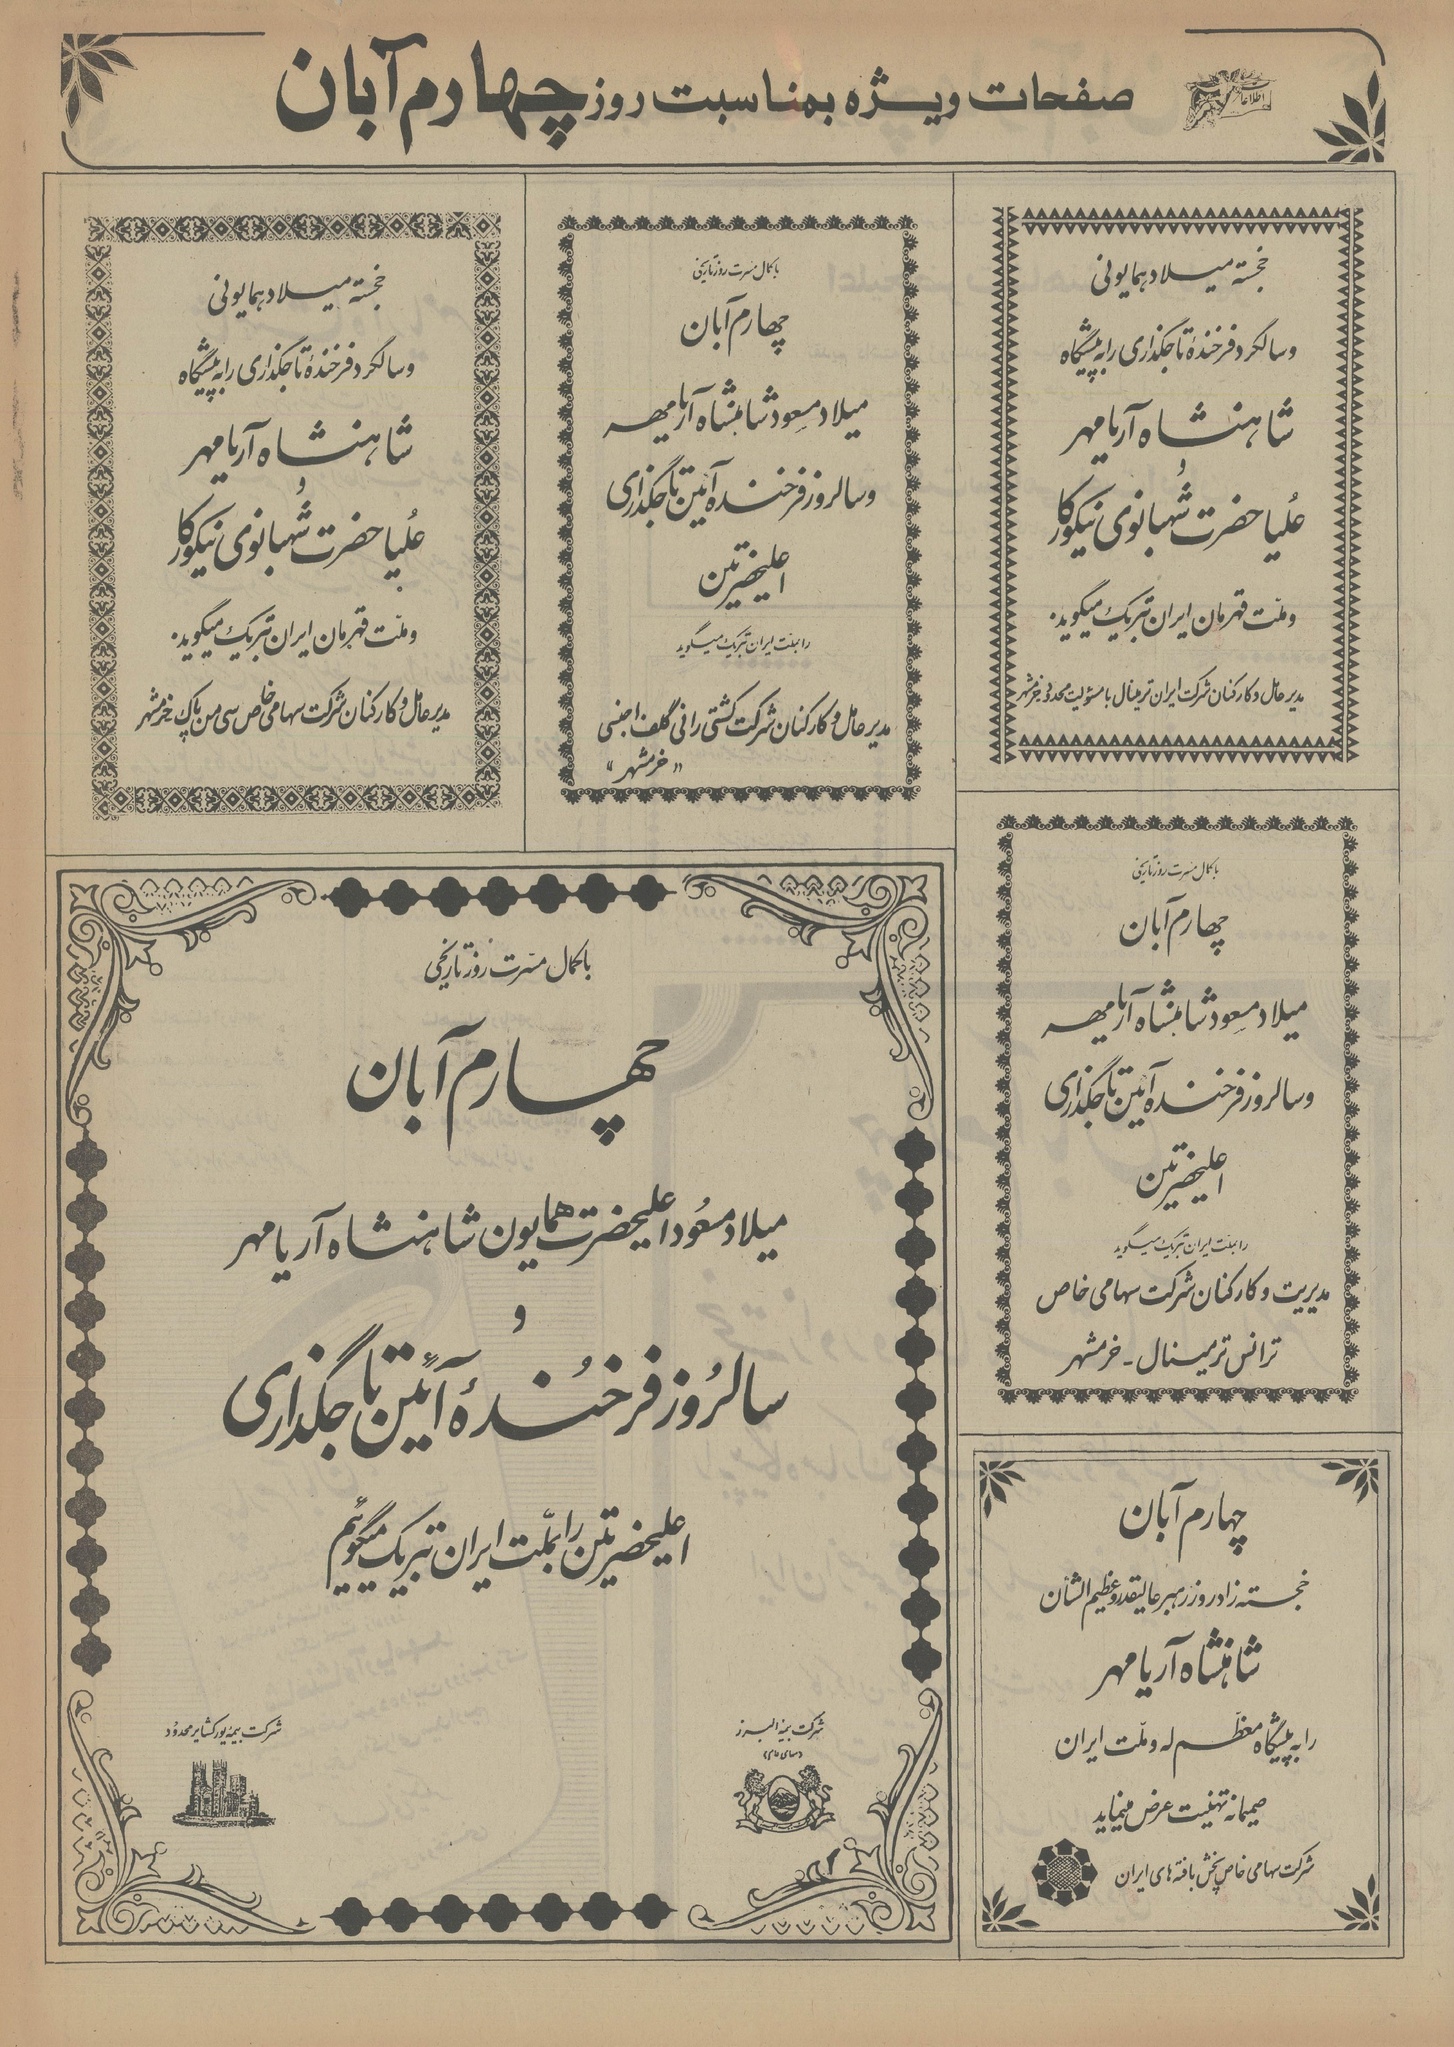 صفحات ویژه بمناسبت روز چهارم آبان
اطلاعات
خجسته میلاد همایونی
و سالگرد فرخندهٔ تاجگذاری را به پیشگاه
شاهنشاه آریامهر
و
علیاحضرت شهبانوی نیکوکار
و ملت قهرمان ایران تبریک میگوید.
مدیر عامل و کارکنان شرکت ایران ترمینال با مسئولیت محدود خرمشهر
با کمال مسرت روز تاریخی
چهارم آبان
میلاد مسعود شاهنشاه آریامهر
و سالروز فرخنده آئین تاجگذاری
اعلیحضرتین
را بملت ایران تبریک میگوید
مدیر عامل و کارکنان شرکت کشتی رانی گلف اجنسی
«خرمشهر»
خجسته میلاد همایونی
و سالگرد فرخندهٔ تاجگذاری را به پیشگاه
شاهنشاه آریامهر
و
علیاحضرت شهبانوی نیکوکار
و ملت قهرمان ایران تبریک میگوید.
مدیر عامل و کارکنان شرکت سهامی خاص سی من پاک خرمشهر
با کمال مسرت روز تاریخی
چهارم آبان
میلاد مسعود شاهنشاه آریامهر
و سالروز فرخنده آئین تاجگذاری
اعلیحضرتین
را بملت ایران تبریک میگوید
مدیریت و کارکنان شرکت سهامی خاص
ترانس ترمینال - خرمشهر
با کمال مسرت روز تاریخی
چهارم آبان
میلاد مسعود اعلیحضرت همایون شاهنشاه آریامهر
و
سالروز فرخندهٔ آئین تاجگذاری
اعلیحضرتین را بملت ایران تبریک میگوئیم
شرکت بیمه البرز
(سهامی خاص)
شرکت بیمه یورکشایر محدود
چهارم آبان
خجسته زادروز رهبر عالیقدر و عظیم الشأن
شاهنشاه آریامهر
را به پیشگاه معظم له و ملت ایران
صمیمانه تهنیت عرض مینماید
شرکت سهامی خاص پخش بافته های ایران